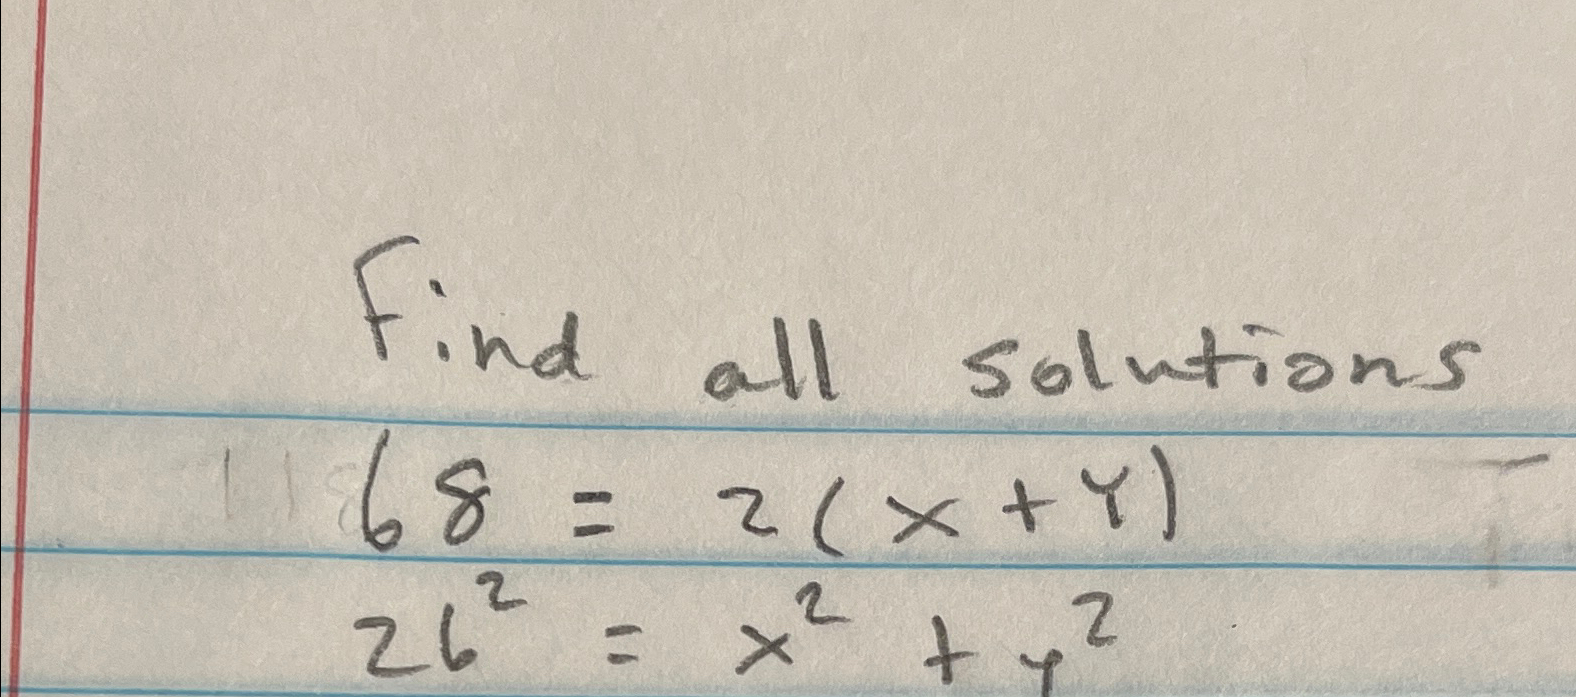 Find all solutions
68 = 2(x+Y)
26² = x² + y²